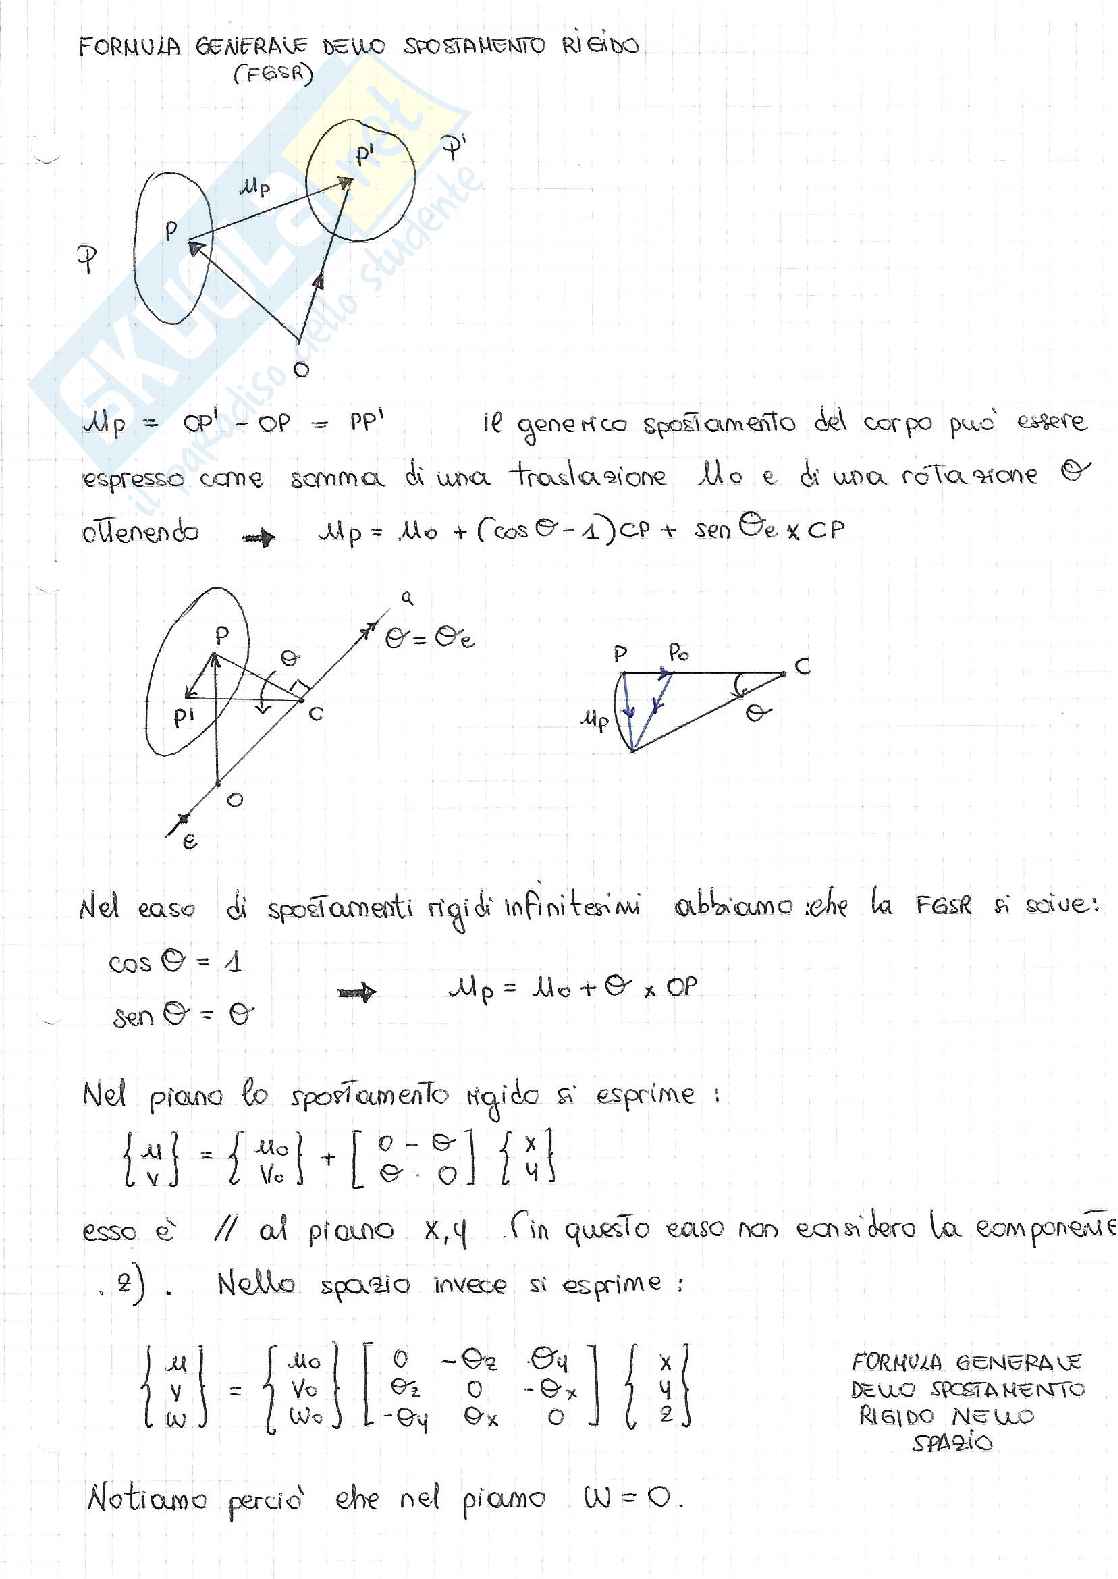 FORMULA GENERALE DELLO SPOSTAMENTO RIGIDO
(FGSR)
P' P'
up
P
P
O
up = OP' - OP = PP' il generico spostamento del corpo può essere
espresso come somma di una traslazione uo e di una rotazione θ
ottenendo → up = uo + (cos θ - 1)CP + sen θe x CP
a
θ = θe
P
θ
P'
C
O
e
P Po C
up
θ
Nel caso di spostamenti rigidi infinitesimi abbiamo che la FGSR si scive:
cos θ = 1
→ up = uo + θ x OP
sen θ = θ
Nel piano lo spostamento rigido si esprime :
{u v} = {uo vo} + [0 -θ θ 0] {x y}
esso è // al piano x,y (in questo caso non considero la componente
z) . Nello spazio invece si esprime :
{u v w} = {uo vo wo} [0 -θz θy θz 0 -θx -θy θx 0] {x y z}
FORMULA GENERALE
DELLO SPOSTAMENTO
RIGIDO NELLO
SPAZIO
Notiamo perciò che nel piano w = 0.
SKUOLA.net
il paradiso dello studente